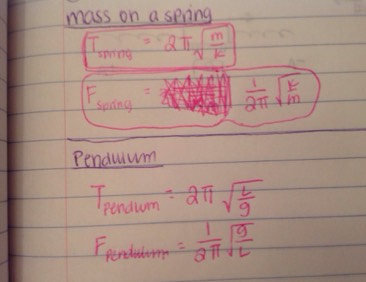 mass on a spring
T spring = 2π √(m/k)
F spring = 1/2π √(k/m)
Pendulum
T Pendlum = 2π √(L/g)
F Pendulum = 1/2π √(g/L)